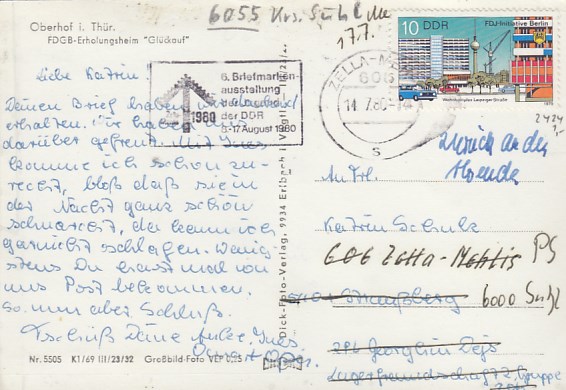 6055 Krs. Suhl
17.7.
Oberhof i. Thür.
FDGB-Erholungsheim "Glückauf"
10 DDR
FDJ-Initiative Berlin
Wohnkomplex Leipziger Straße
1979
ZELLA-ME
606
11.7.80
s
1980
6. Briefmarken-
ausstellung
der Jugend
der DDR
8.-17. August 1980
2424
Liebe Katrin!
Deinen Brief haben wir dankend
erhalten. Wir haben uns
darüber gefreut. Mit Ines
komme ich schon zu-
recht, bloß daß sie in
der Nacht ganz schön
schnarcht, da kann ich
garnicht schlafen. Wenig
stens Du hast mal von
uns Post bekommen.
So, nun aber Schluß.
Tschüß Deine Antje, Ines
Zurück an den
Absender
An Frl.
Katrin Schulz
606 Zella-Mehlis PS
Straußberg 6000 Suhl
ZPL
Lagerfreundschaft 2, Gruppe
Nr. 5505 K1/69 III/23/32 Großbild-Foto VEP 0,25
Dick-Foto-Verlag, 9934 Erlbach i. Vogtl.